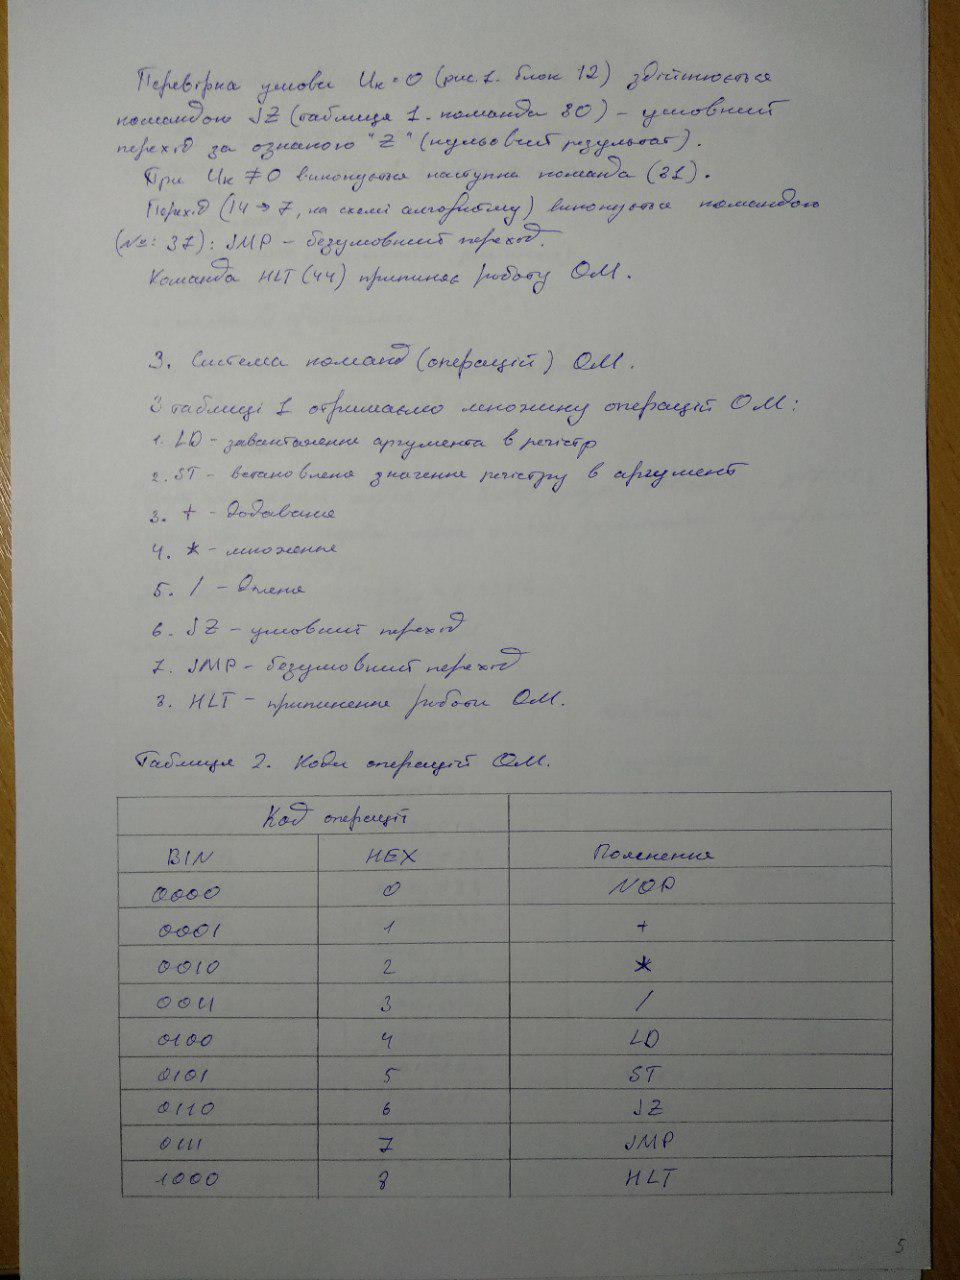 Перевірка умови Uк=0 (рис.1. блок 12) здійснюється
командою JZ (таблиця 1. команда 30) – умовний
перехід за ознакою "Z" (нульовий результат).
При Uк ≠ 0 виконується наступна команда (31).
Перехід (14→7, на схемі алгоритму) виконується командою
(№: 37): JMP – безумовний перехід.
Команда HLT (44) припиняє роботу ОМ.
3. Система команд (операцій) ОМ.
З таблиці 1 отримаємо множину операцій ОМ:
1. LD – завантаження аргумента в регістр
2. ST – встановлення значення регістру в аргумент
3. + – додавання
4. * – множення
5. / – ділення
6. JZ – умовний перехід
7. JMP – безумовний перехід
8. HLT – припинення роботи ОМ.
Таблиця 2. Коди операцій ОМ.
Код операції
BIN HEX Пояснення
0000 0 NOP
0001 1 +
0010 2 *
0011 3 /
0100 4 LD
0101 5 ST
0110 6 JZ
0111 7 JMP
1000 8 HLT
5